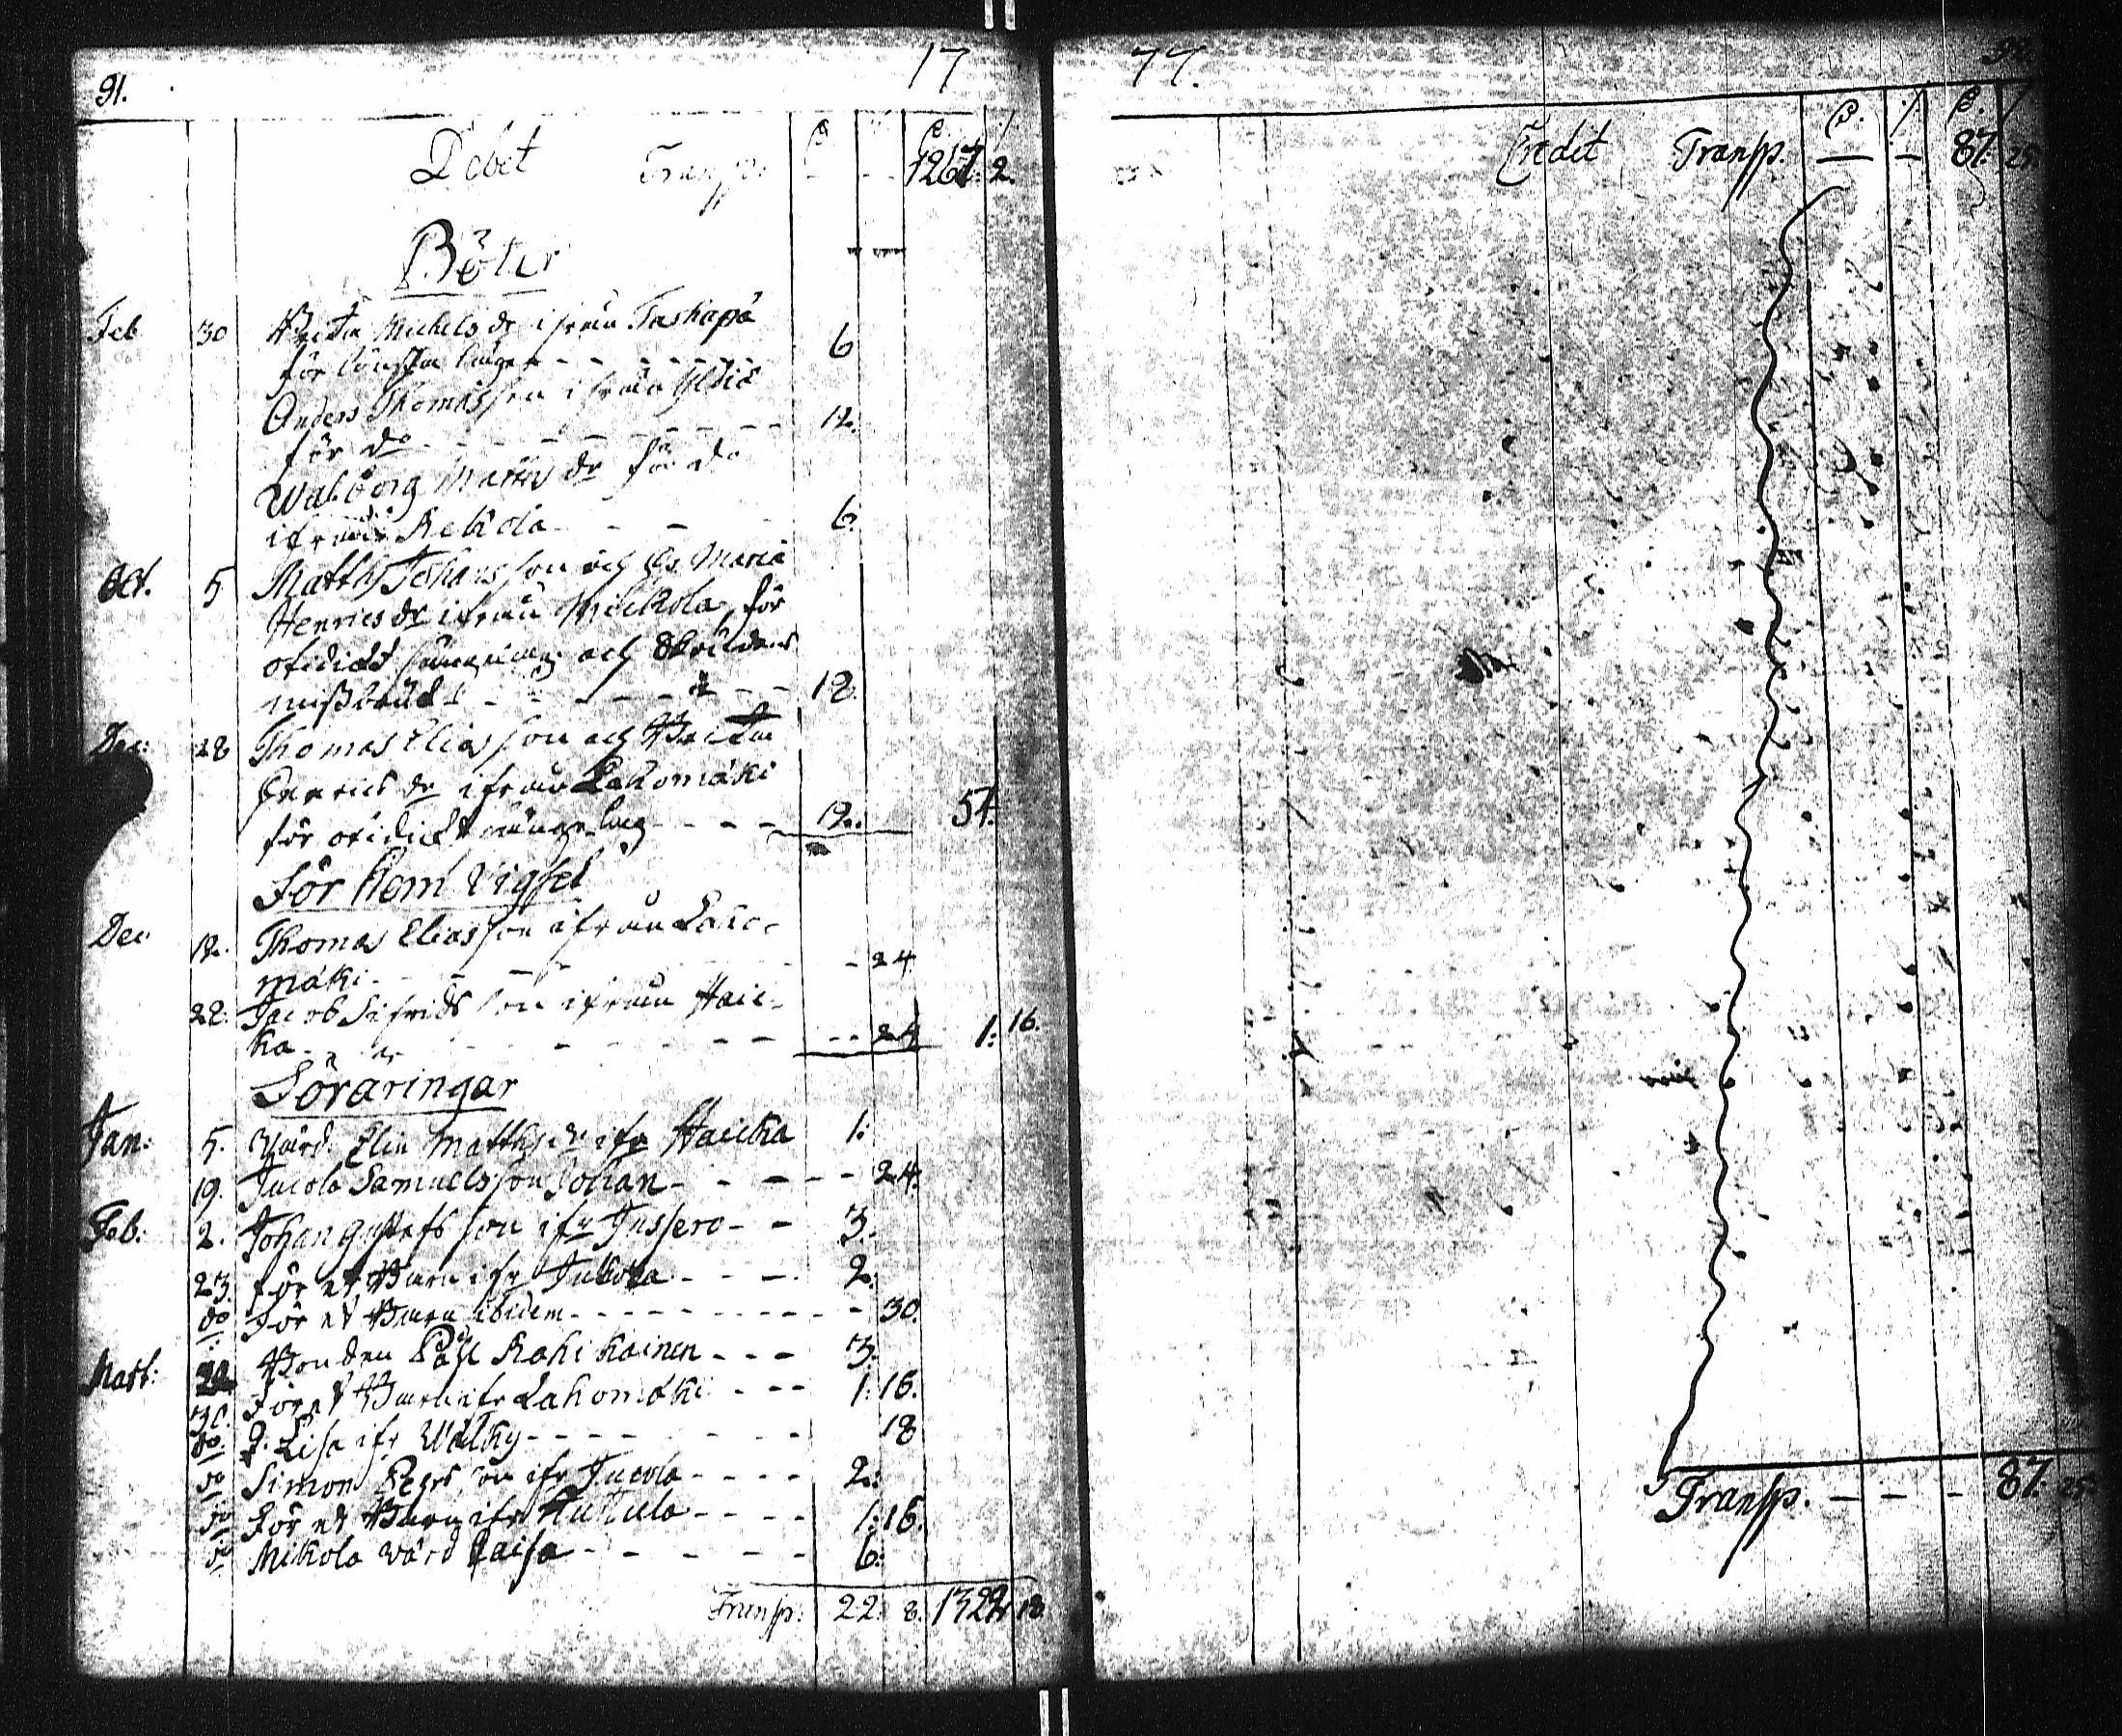 91. 17
Debet Transp. 1267: 2.
Böter
Feb 30 Brita Michels dr ifrån Taskapä
för lönska läger - - - 6
Anders Thomasson ifrån
för do - - - 12.
Walborg Matts dr för do
ifrån Rekola - - - 6.
Oct. 5 Matth Johansson och h. Maria
Henrics dr ifrån Mickola för
otidigt sängelag och Skruders
missbruk - - - 18.
Dec: 28 Thomas Eliasson och Brita
Henrics dr ifrån Lahomäki
för otidigt sängelag - - - 12. 54.
För Hem Vigsel
Dec 12. Thomas Eliasson ifrån
mäki - - - 24
28. Jacob Sifridsson ifrån Hauc-
ka - - - 24 1: 16.
Föräringar
Jan: 5. Wård. Elin Matths dr ifr Haucka 1:
19. Jacob Samuelsson Johan - - - 24.
Feb: 2. Johan Gustafsson ifr Inssero - - 3.
23. för et Barn ifr Jukola - - - 2.
do För et Barn ibidem - - - 30.
Mart: Bonden Påhl Rahikainen - - - 3.
30. För et Barn ifr Lahomäki - - - 1: 16.
do. P. Lisa ifr Wälky - - - 18
do Simon Pehrsson ifr Jucola - - - 2:
do För et Barn ifr Huttula - - - 1: 16.
do Mikola wård Caisa - - - 6:
Transp: 22: 8. 1322: 18
77. 92.
Credit Transp. — — 87: 25.
Transp. — — - 87. 25.